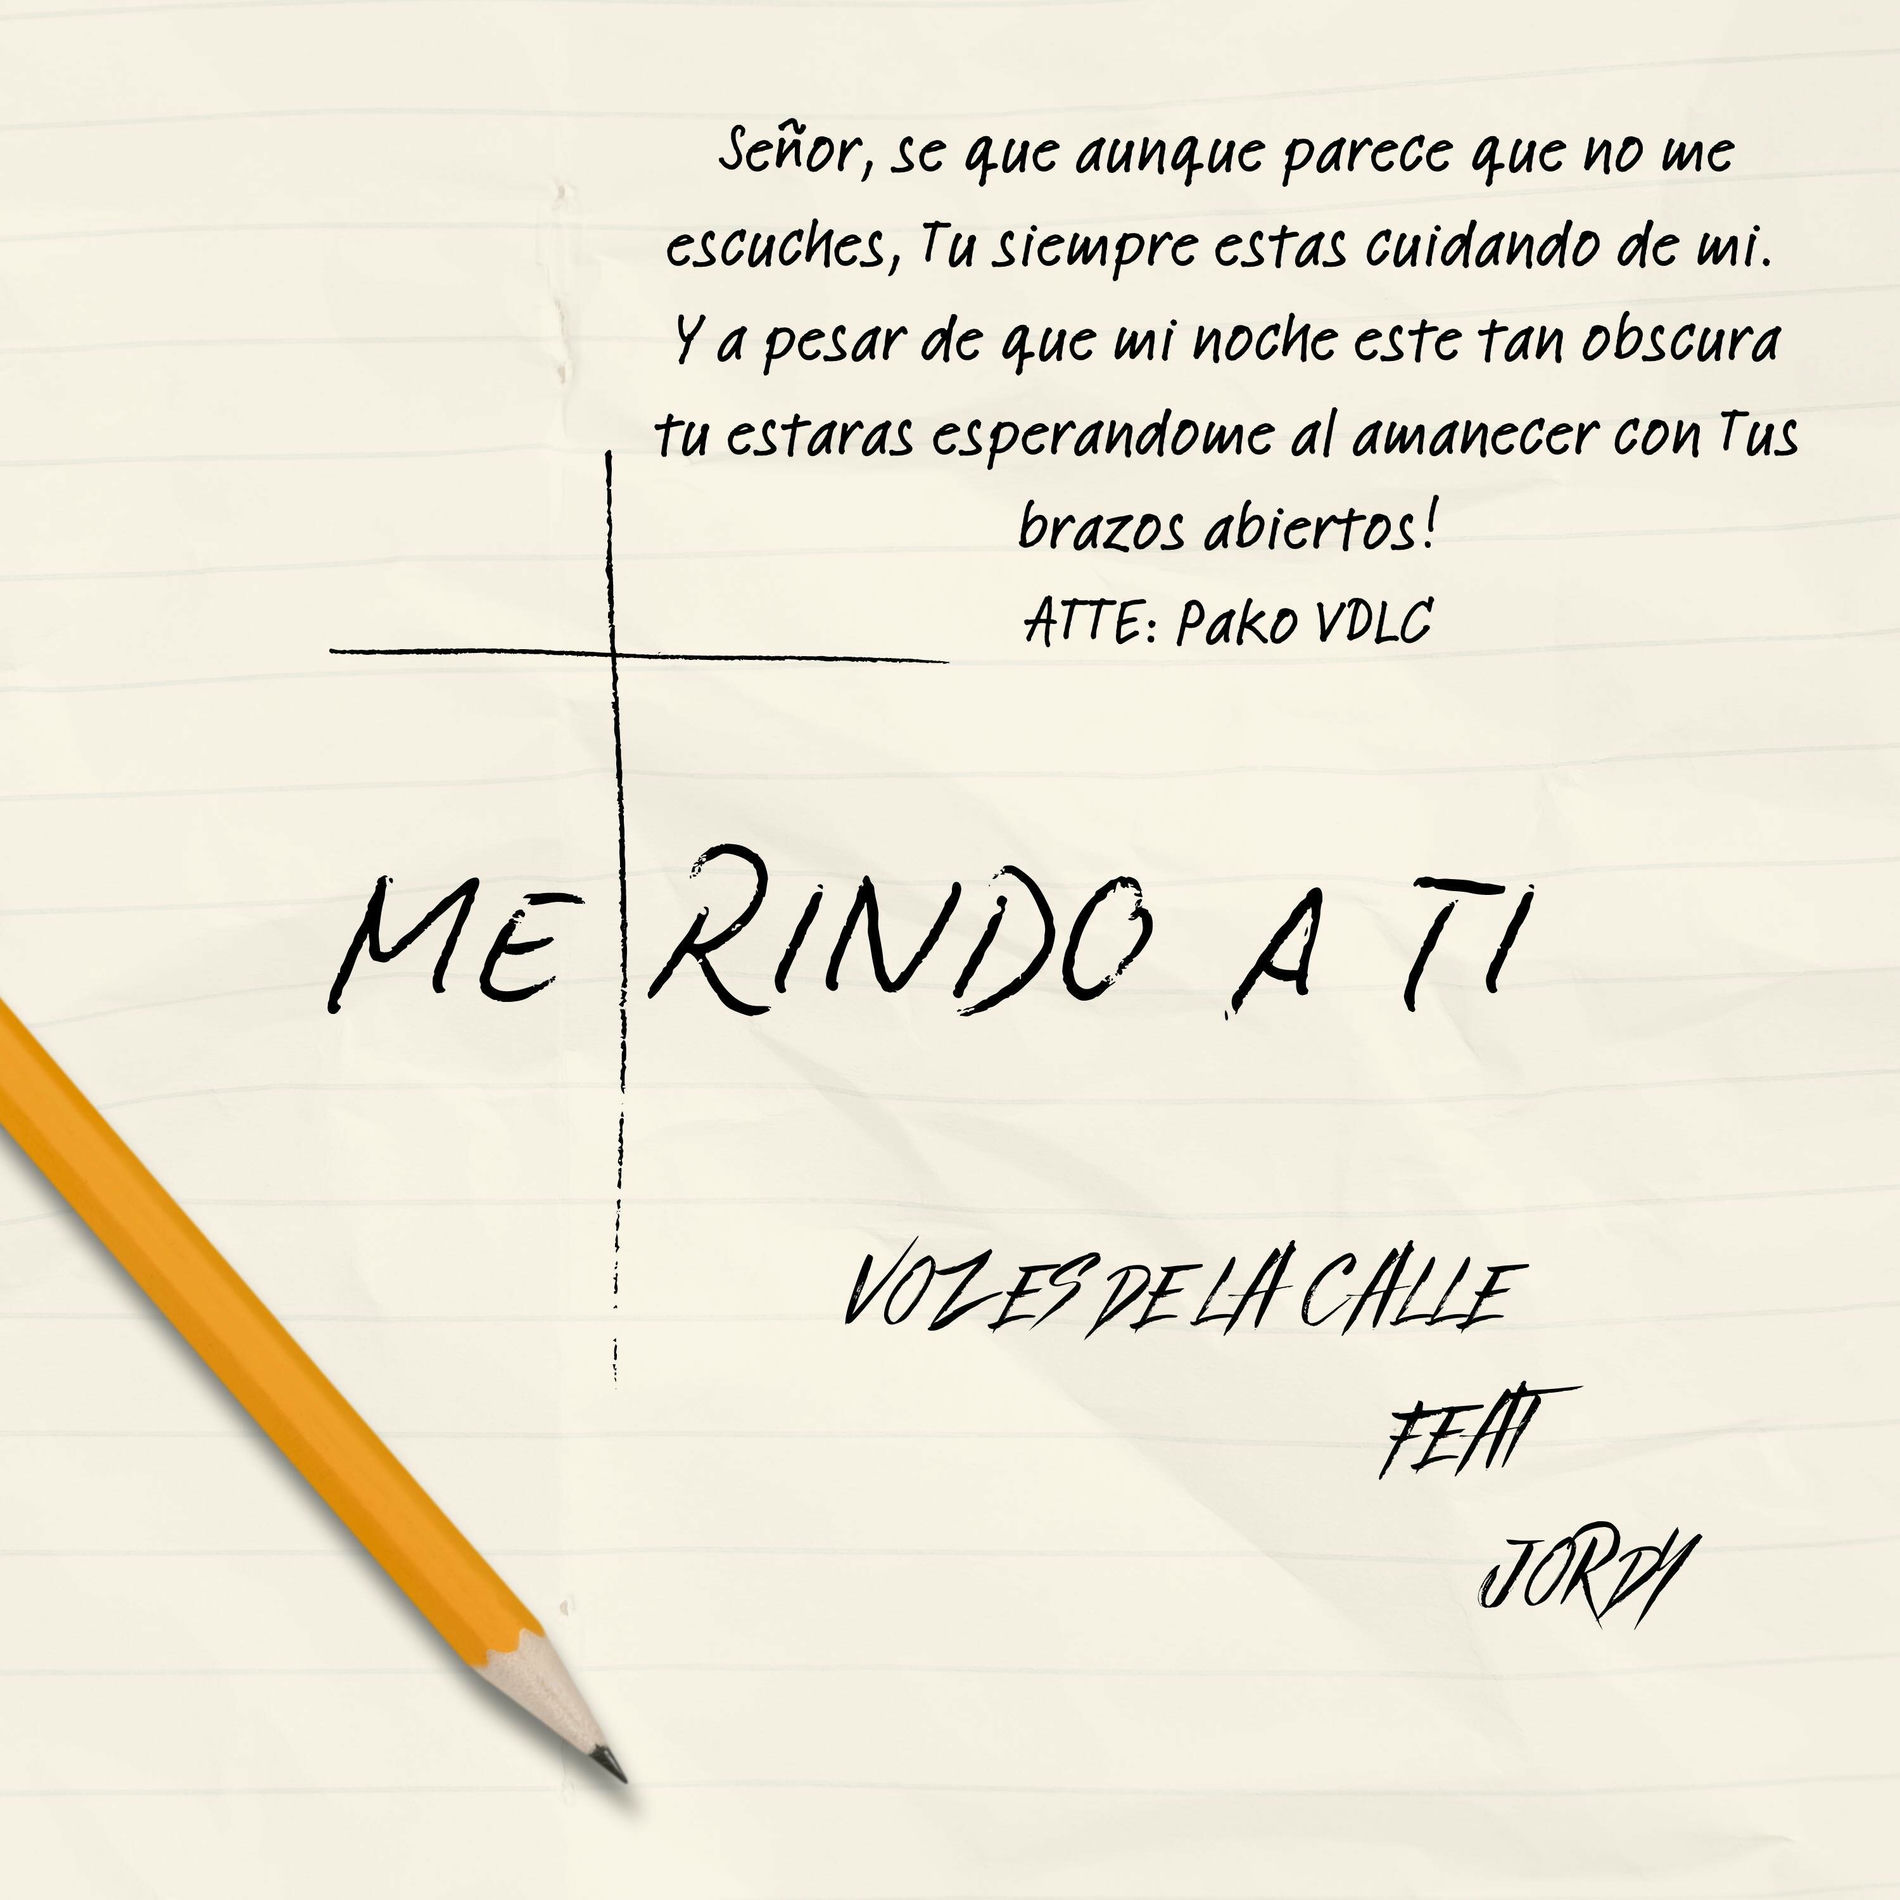 Señor, se que aunque parece que no me
escuches, Tu siempre estas cuidando de mi.
Y a pesar de que mi noche este tan obscura
tu estaras esperandome al amanecer con Tus
brazos abiertos!
ATTE: Pako VDLC
ME RINDO A TI
VOZES DE LA CALLE
FEAT
JORDY